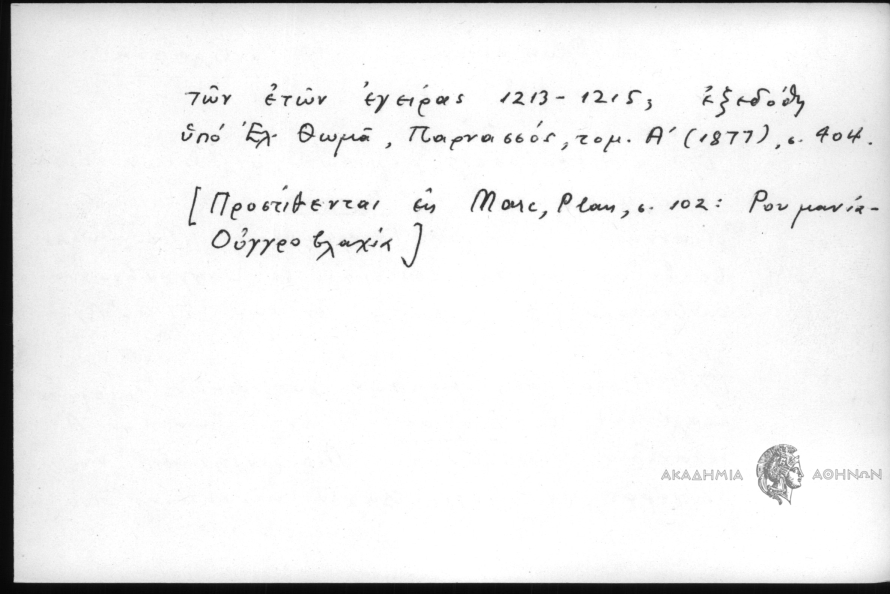 τῶν ἐτῶν ἐγείρας 1213-1215, ἐξεδόθη
ὑπό Ἐλ. Θωμᾶ, Παρνασσός, τομ. Α΄ (1877), σ. 404.
[Προστίθενται ἐκ Marc, Plan, σ. 102: Ρουμανία-
Οὐγγροβλαχία]
ΑΚΑΔΗΜΙΑ ΑΘΗΝΩΝ